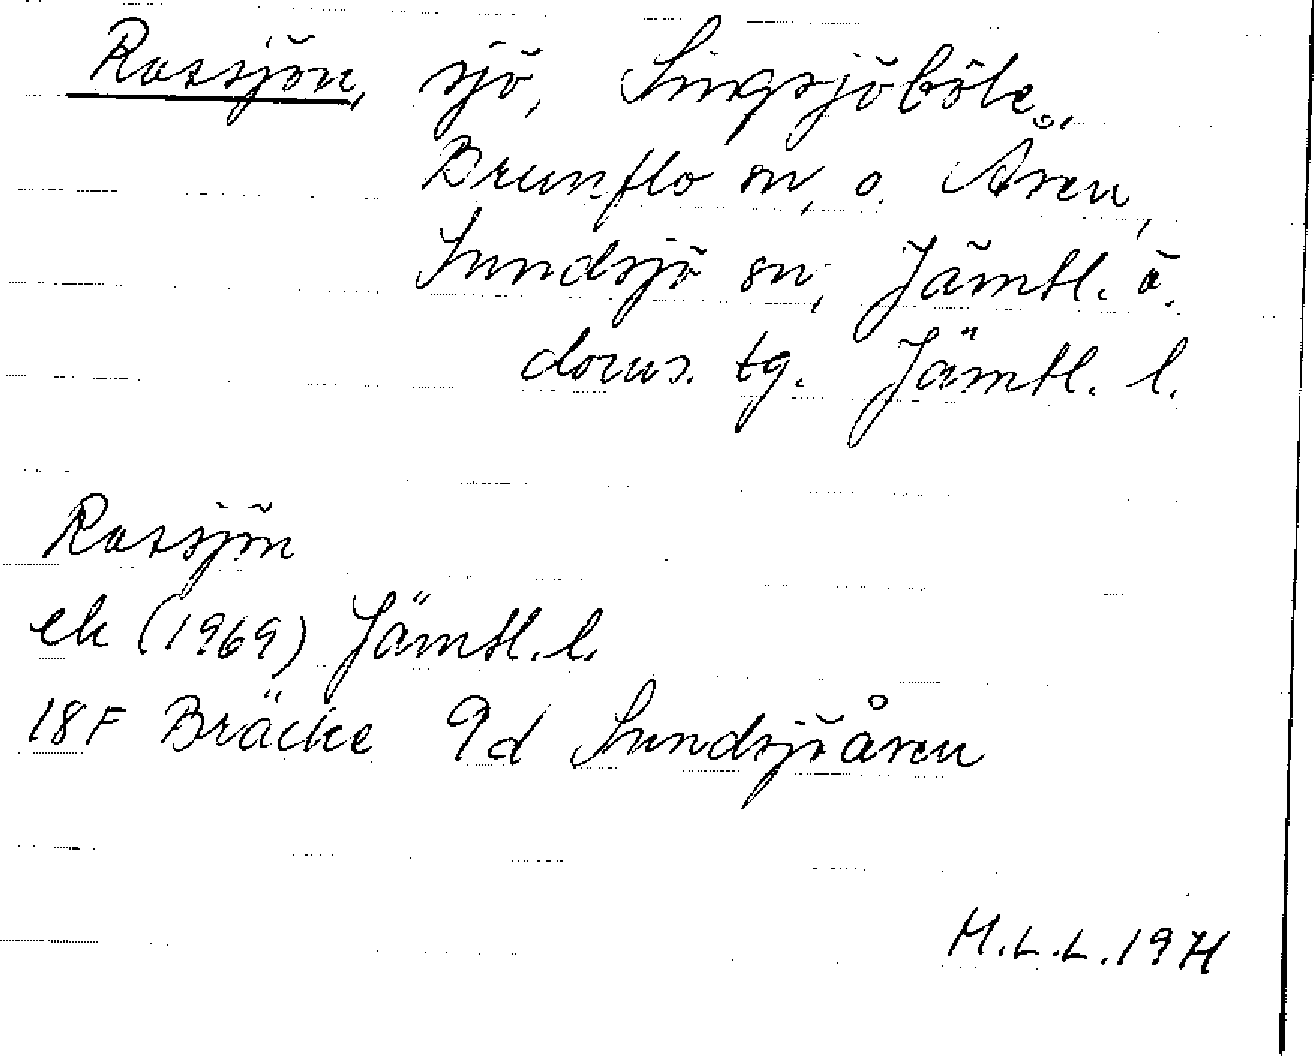 Rossjön, sjö, Singsjöböle,
Brunflo sn, o. Ången,
Sundsjö sn, Jämtl. ö.
doms. tg. Jämtl. l.
Rossjön
ek (1969) Jämtl. l.
18F Bräcke 9d Sundsjöåsen
H.L.L. 1971